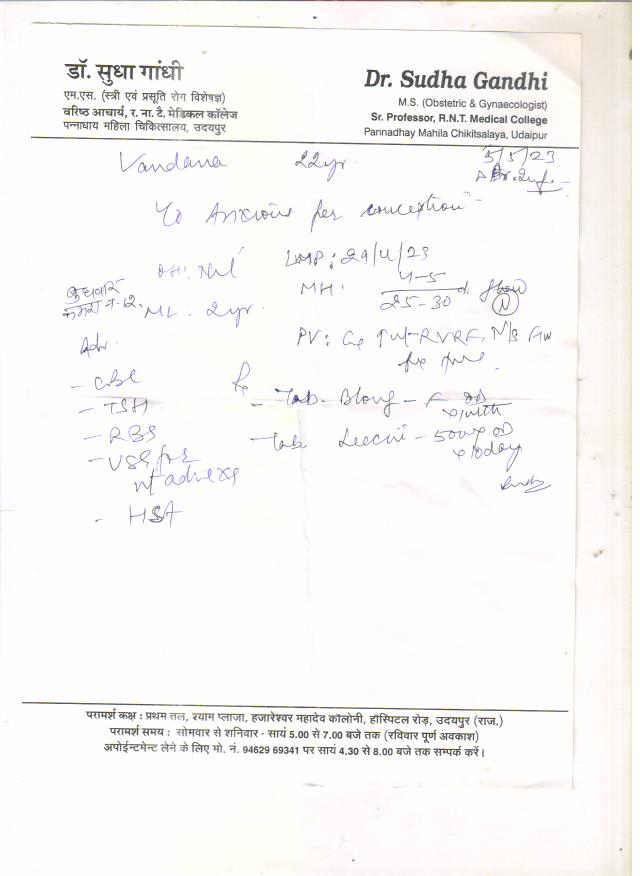 डॉ. सुधा गांधी
एम.एस. (स्त्री एवं प्रसूति रोग विशेषज्ञ)
वरिष्ठ आचार्य, र. ना. टै. मेडिकल कॉलेज
पन्नाधाय महिला चिकित्सालय, उदयपुर
Dr. Sudha Gandhi
M.S. (Obstetric & Gynaecologist)
Sr. Professor, R.N.T. Medical College
Pannadhay Mahila Chikitsalaya, Udaipur
Vandana 22yr. 5/5/23
Anxious for conception
OH: Nil LMP: 29/4/23
MH: 4-5
25-30 d. flow
N
बुधवार
कमरा न-12.
ML: 2yr.
PV: RVRF,
Adv.
- CBC
- TSH
- RBS
- USG for
ut adnexa
- HSA
Rx
- Tab. - F OD
x1mth
- Tab - 500 OD
x10day
परामर्श कक्ष : प्रथम तल, श्याम प्लाजा, हजारेश्वर महादेव कॉलोनी, हॉस्पिटल रोड़, उदयपुर (राज.)
परामर्श समय : सोमवार से शनिवार - सायं 5.00 से 7.00 बजे तक (रविवार पूर्ण अवकाश)
अपोईन्टमेन्ट लेने के लिए मो. नं. 94629 69341 पर सायं 4.30 से 8.00 बजे तक सम्पर्क करें।